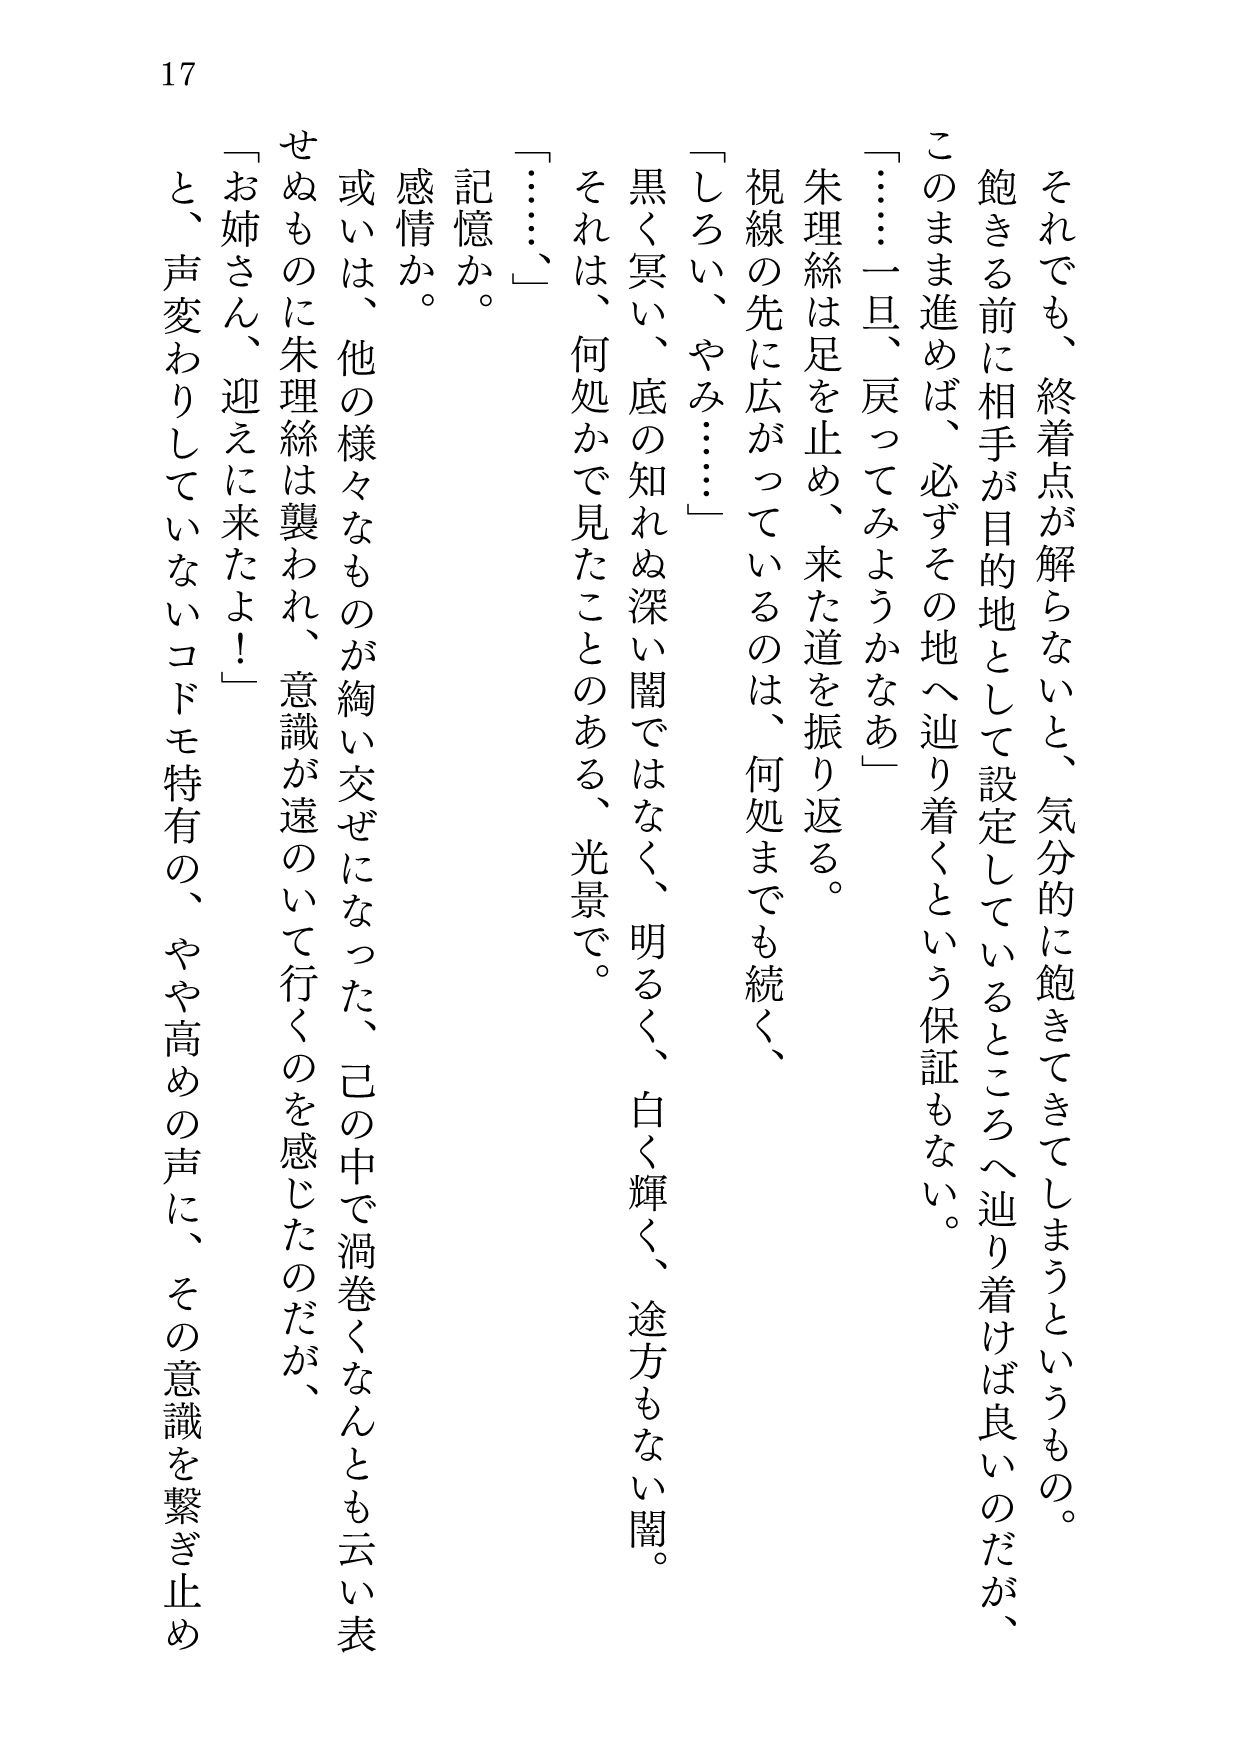 17
それでも、終着点が解らないと、気分的に飽きてきてしまうというもの。
飽きる前に相手が目的地として設定しているところへ辿り着けば良いのだが、
このまま進めば、必ずその地へ辿り着くという保証もない。
「……一旦、戻ってみようかなあ」
朱理絲は足を止め、来た道を振り返る。
視線の先に広がっているのは、何処までも続く、
「しろい、やみ……」
黒く冥い、底の知れぬ深い闇ではなく、明るく、白く輝く、途方もない闇。
それは、何処かで見たことのある、光景で。
「……、」
記憶か。
感情か。
或いは、他の様々なものが綯い交ぜになった、己の中で渦巻くなんとも云い表
せぬものに朱理絲は襲われ、意識が遠のいて行くのを感じたのだが、
「お姉さん、迎えに来たよ！」
と、声変わりしていないコドモ特有の、やや高めの声に、その意識を繋ぎ止め